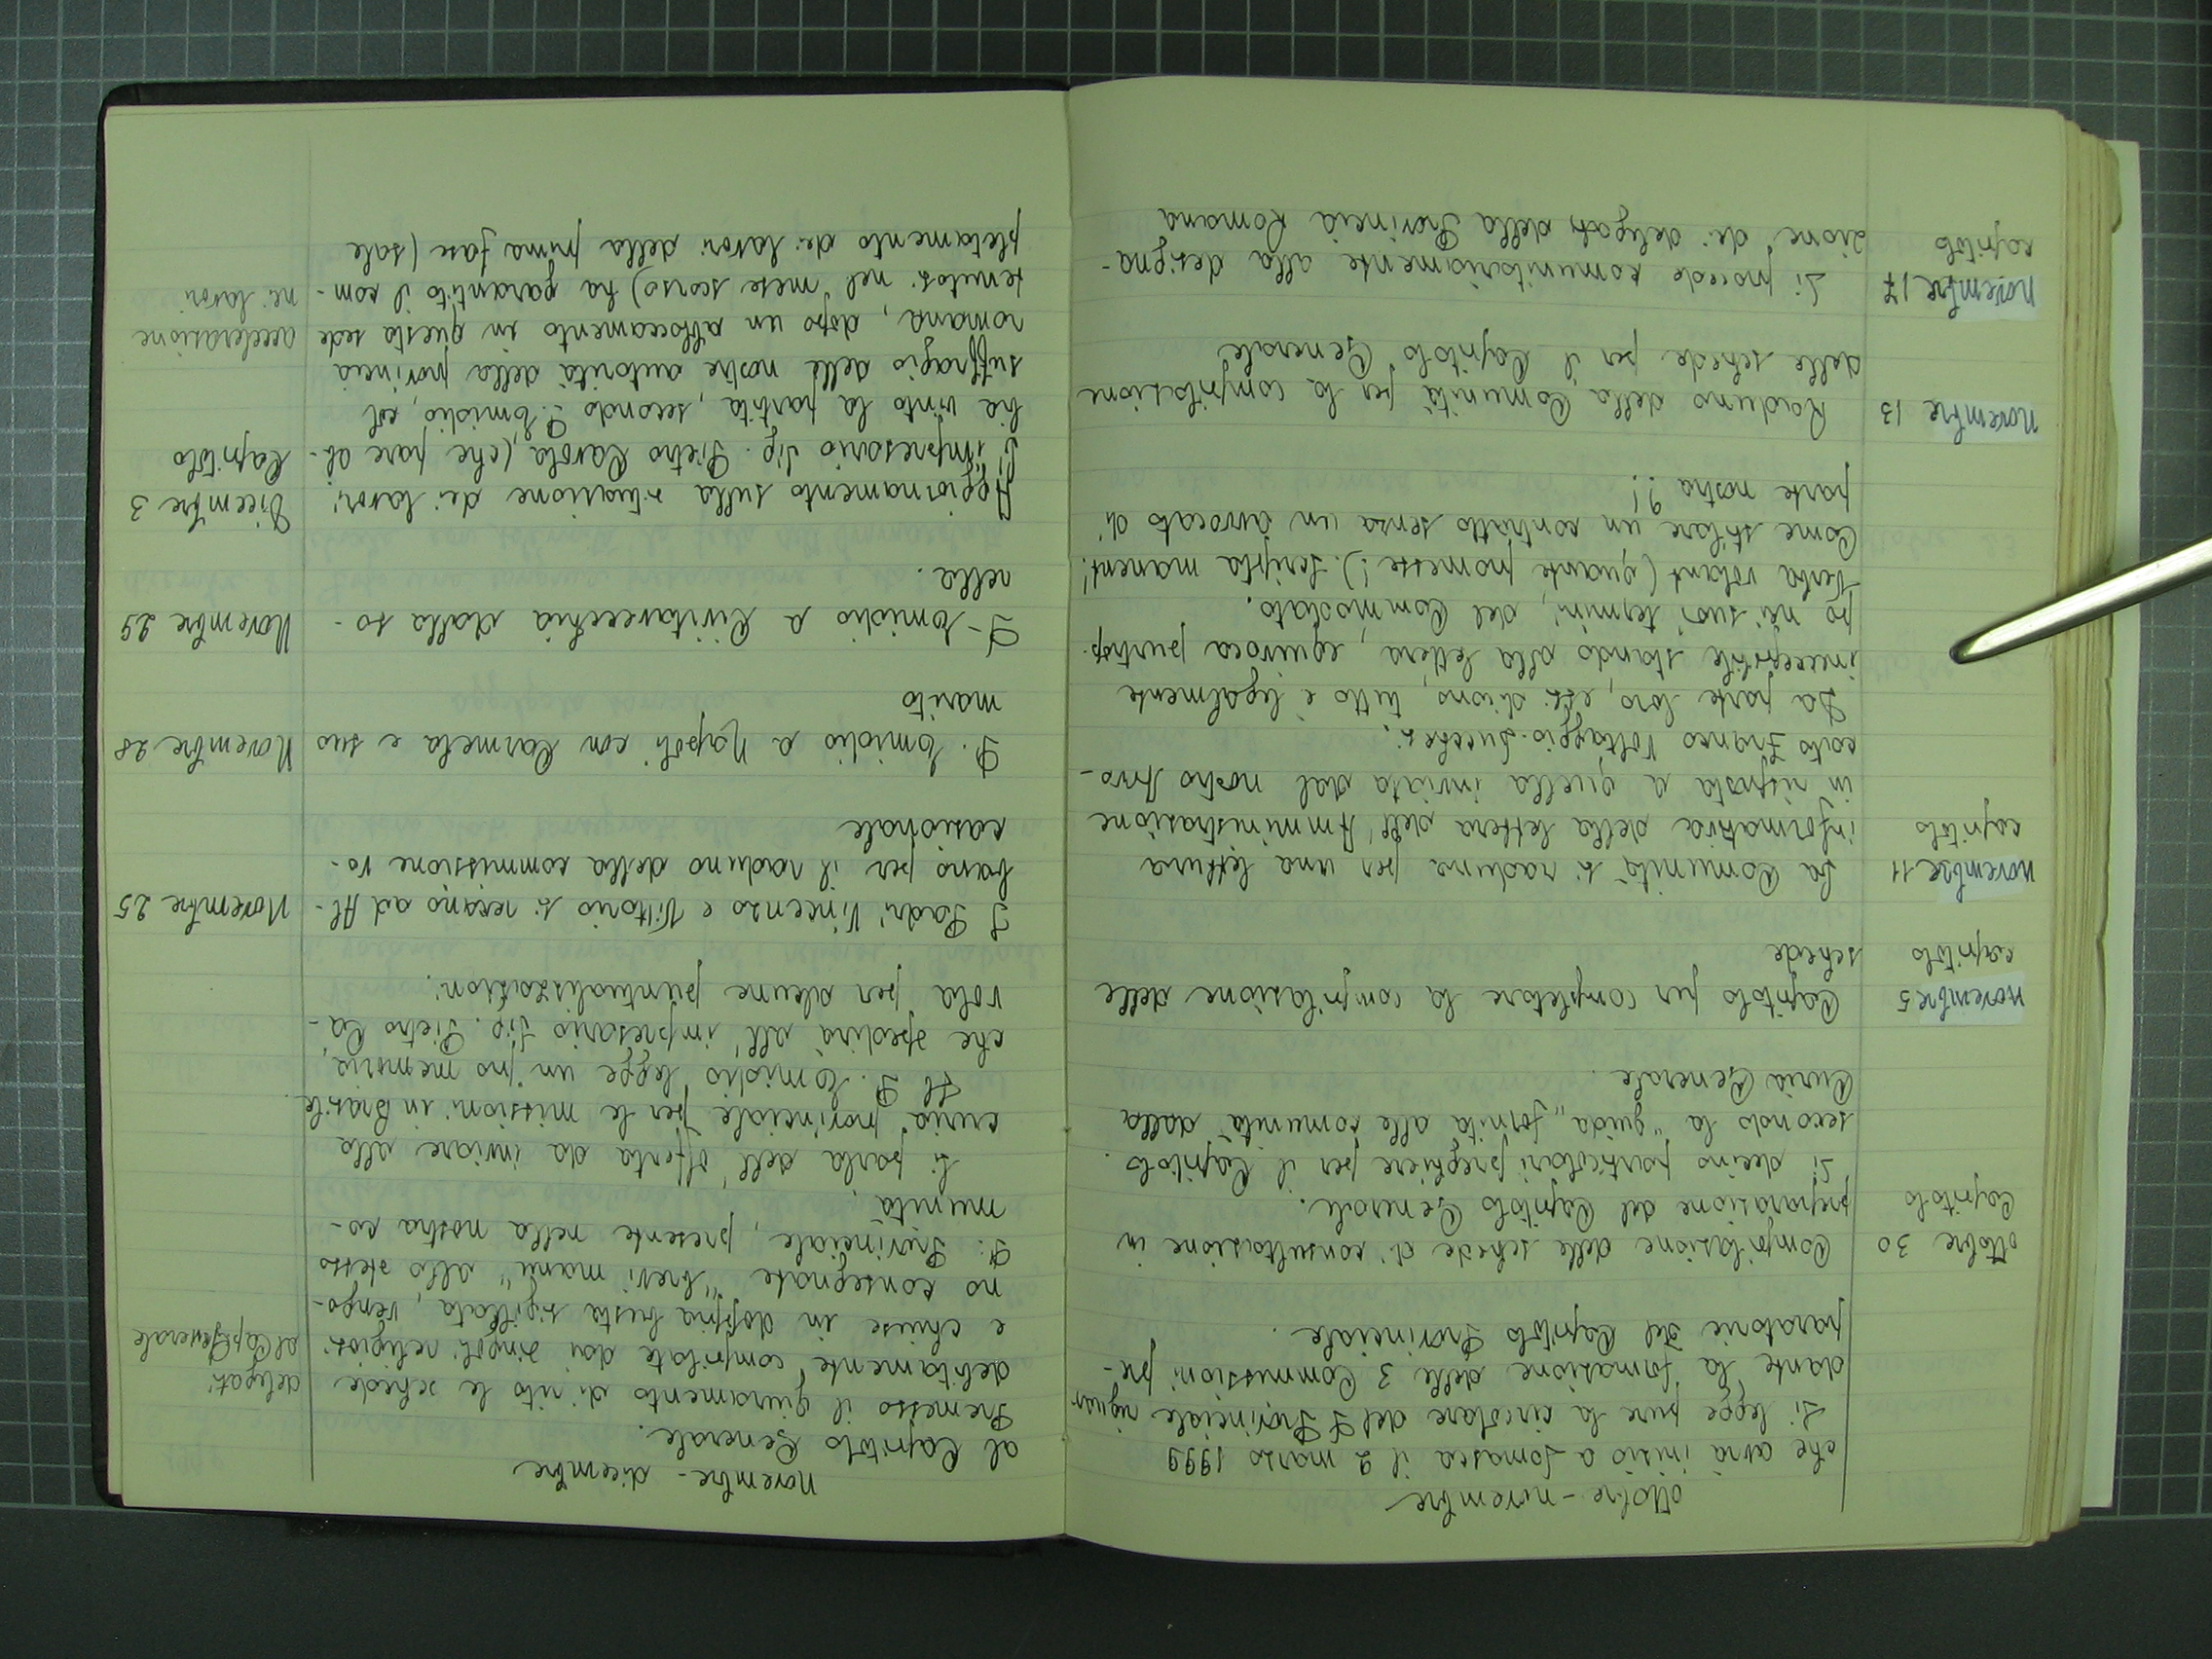 ottobre - novembre
che avrà inizio a Somasca il 2 marzo 1999
Si legge pure la circolare del P Provinciale riguar
dante la formazione delle 3 Commissioni pre-
paratorie del Capitolo Provinciale.
ottobre 30 Compilazione delle schede di consultazione in
Capitolo preparazione del Capitolo Generale.
Si decino particolari preghiere per il Capitolo.
secondo la "guida" fornita alle comunità dalla
Curia Generale.
novembre 5 Capitolo per completare la compilazione delle
capitolo schede
novembre 11 La Comunità si raduna per una lettura
capitolo informativa della lettera dell'Amministrazione
in risposta a quella inviata dal nostro Avvo-
cato Franco Voltaggio-Lucchesi.
Da parte loro, essi dicono, tutto è legalmente
ineccepibile stando alla lettera, equivoca purtrop.
po nei suoi termini, del Commodato.
Verba volant (quante promesse!). Scripta manent!
Come stilare un contratto senza un avvocato di
parte nostra ?!
novembre 13 Raduno della Comunità per la compilazione
delle schede per il Capitolo Generale
novembre 17 Si procede comunitariamente alla designa-
capitolo zione dei delegati della Provincia Romana
novembre - dicembre
al Capitolo Generale.
Premesso il giuramento di rito le schede delegati
debitamente compilate dai singoli religiosi al Cap. Generale
e chiuse in doppia busta sigillata, vengo-
no consegnate "brevi manu" allo stesso
P. Provinciale, presente nella nostra co-
munità.
Si parla dell'offerta da inviare alla
curia provinciale per le missioni in Brasile
Il P. Emidio legge un pro memoria,
che spedirà all'impresario Sig. Pietro Ca-
rola per alcune puntualizzazioni.
I Padri Vincenzo e Vittorio si recano ad Al- Novembre 25
bano per il raduno della commissione vo-
cazionale
P. Emidio a Napoli con Carmela e suo Novembre 28
marito
P. Emidio a Civitavecchia dalla so- Novembre 29
rella.
Aggiornamento sulla situazione dei lavori Dicembre 3
L'impresario Sig. Pietro Carola, (che pare ab- Capitolo
bia vinto la partita, secondo P. Emidio, col
suffragio delle nostre autorità della provincia
romana, dopo un abboccamento in questa sede accelerazione
tenutosi nel mese scorso) ha garantito il com- nei lavori
pletamento dei lavori della prima fase (sale